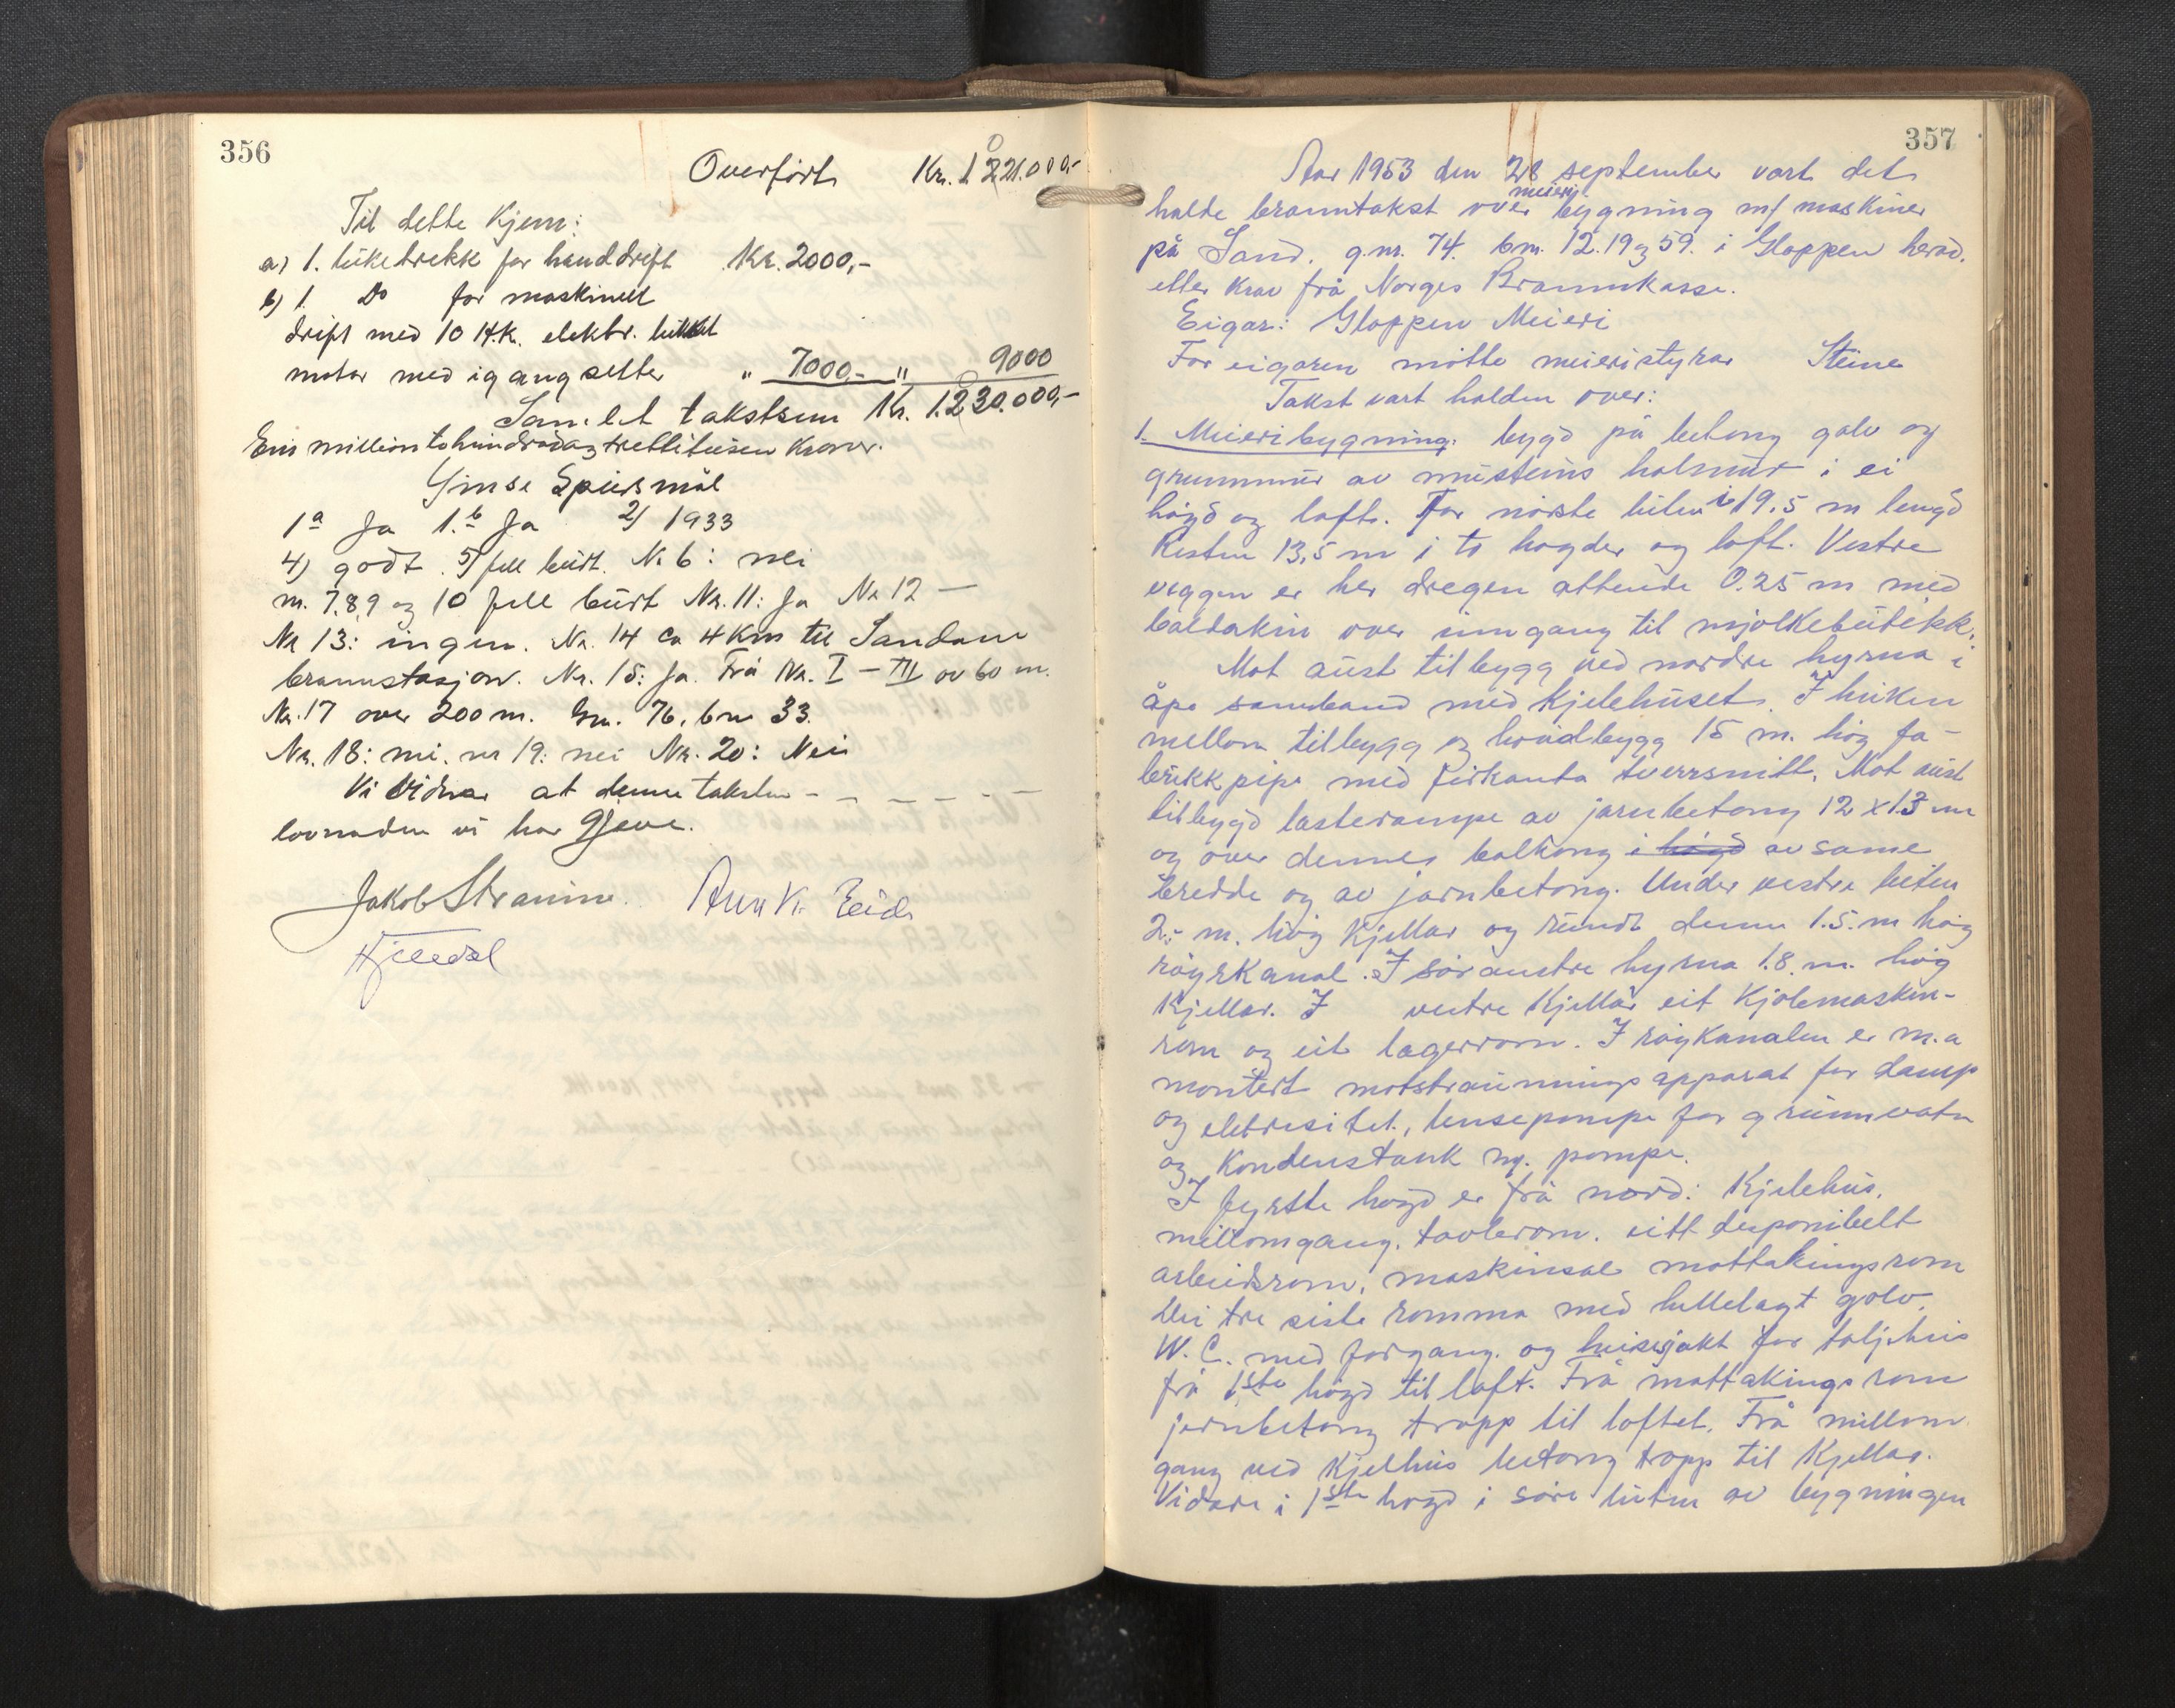 356
Overført Kr. 1.221.000,-
Til dette Kjem:
a) 1. lüketrekk for handdrift Kr. 2000,-
b) 1. Do for maskinell
drift med 10 H.K. elektr. lukket
motor med igangsetter " 7000,- " 9000
Samlet takstsum Kr. 1.230.000,-
Ein million tohundradogtrettitusen Kroner.
Ymse Spursmål
1a Ja 1.b Ja 2/ 1933
4) godt. 5) fell burt. Nr 6: nei
nr. 7,8,9 og 10 fell burt Nr. 11: Ja Nr 12 —
Nr 13: ingen. Nr. 14 ca 4 Km til Sandane
brannstasjon. Nr. 15: Ja. Frå Nr. I – III ov 60 m.
Nr. 17 over 200 m. Gn. 76, bn 33.
Nr. 18: nei. nr 19: nei Nr. 20: Nei
Vi vidnar at denne taksten - - - - - -
lovnaden vi har Gjeve.
Jakob Straume. Ank K. Eide
357
Aar 1953 den 28 september vart det
meieri
halde branntakst over bygning m/ maskiner
på Sand. g.nr. 74. bnr. 12.19 og 59. i Gloppen herad.
etter Krav frå Norges Brannkasse.
Eigar: Gloppen Meieri
For eigaren møtte meieristyrar Steine
Takst vart halden over:
1. Meieribygning: bygd på betong golv og
grunnmur av mursteins holmur i ei
høgd og loft. For nørste luten i 19,5 m lengd
Resten 13,5 m i to høgder og loft. Vestre
veggen er her dregen attende 0.25 m med
baldakin over inngang til mjølkebutikk.
Mot aust tilbygg ved nordre hyrna i
åpe samband med Kjelehuset. I kriken
mellom tilbygg og hovudbygg 15 m. høg fa-
brikkpipe med firkanta tverrsnitt. Mot aust
tilbygd lasterampe av jarnbetong 12 x 1.3 m
og over denne balkong i høgd av same
bredde og av jarnbetong. Under vestre luten
2,- m. høg Kjellar og rundt denne 1.5. m høg
røyrkanal. I søraustre hyrna 1.8. m. høg
Kjellar. I vestre Kjellar eit Kjølemaskin-
rom og eit lagerrom. I røykanalen er m.a
montert motstraumningsapparat for damp
og eletresitet, lensepompe for grunnvatn
og Kondenstank m. pompe.
I fyrste høgd er frå nord: Kjelehus,
millomgang. tavlerom. eitt desponibelt
arbeidsrom, maskinsal mottakingsrom
Dei tre siste romma med hellelagt golv.
W.C. med forgang. og heisesjakt for taljeheis
frå 1ste høgd til loft. Frå mottakingsrom
jarnbetong tropp til loftet. Frå millom
gang ved Kjelhus betong tropp til Kjellar.
Vidare i 1ste høgd i søre luten av bygningen